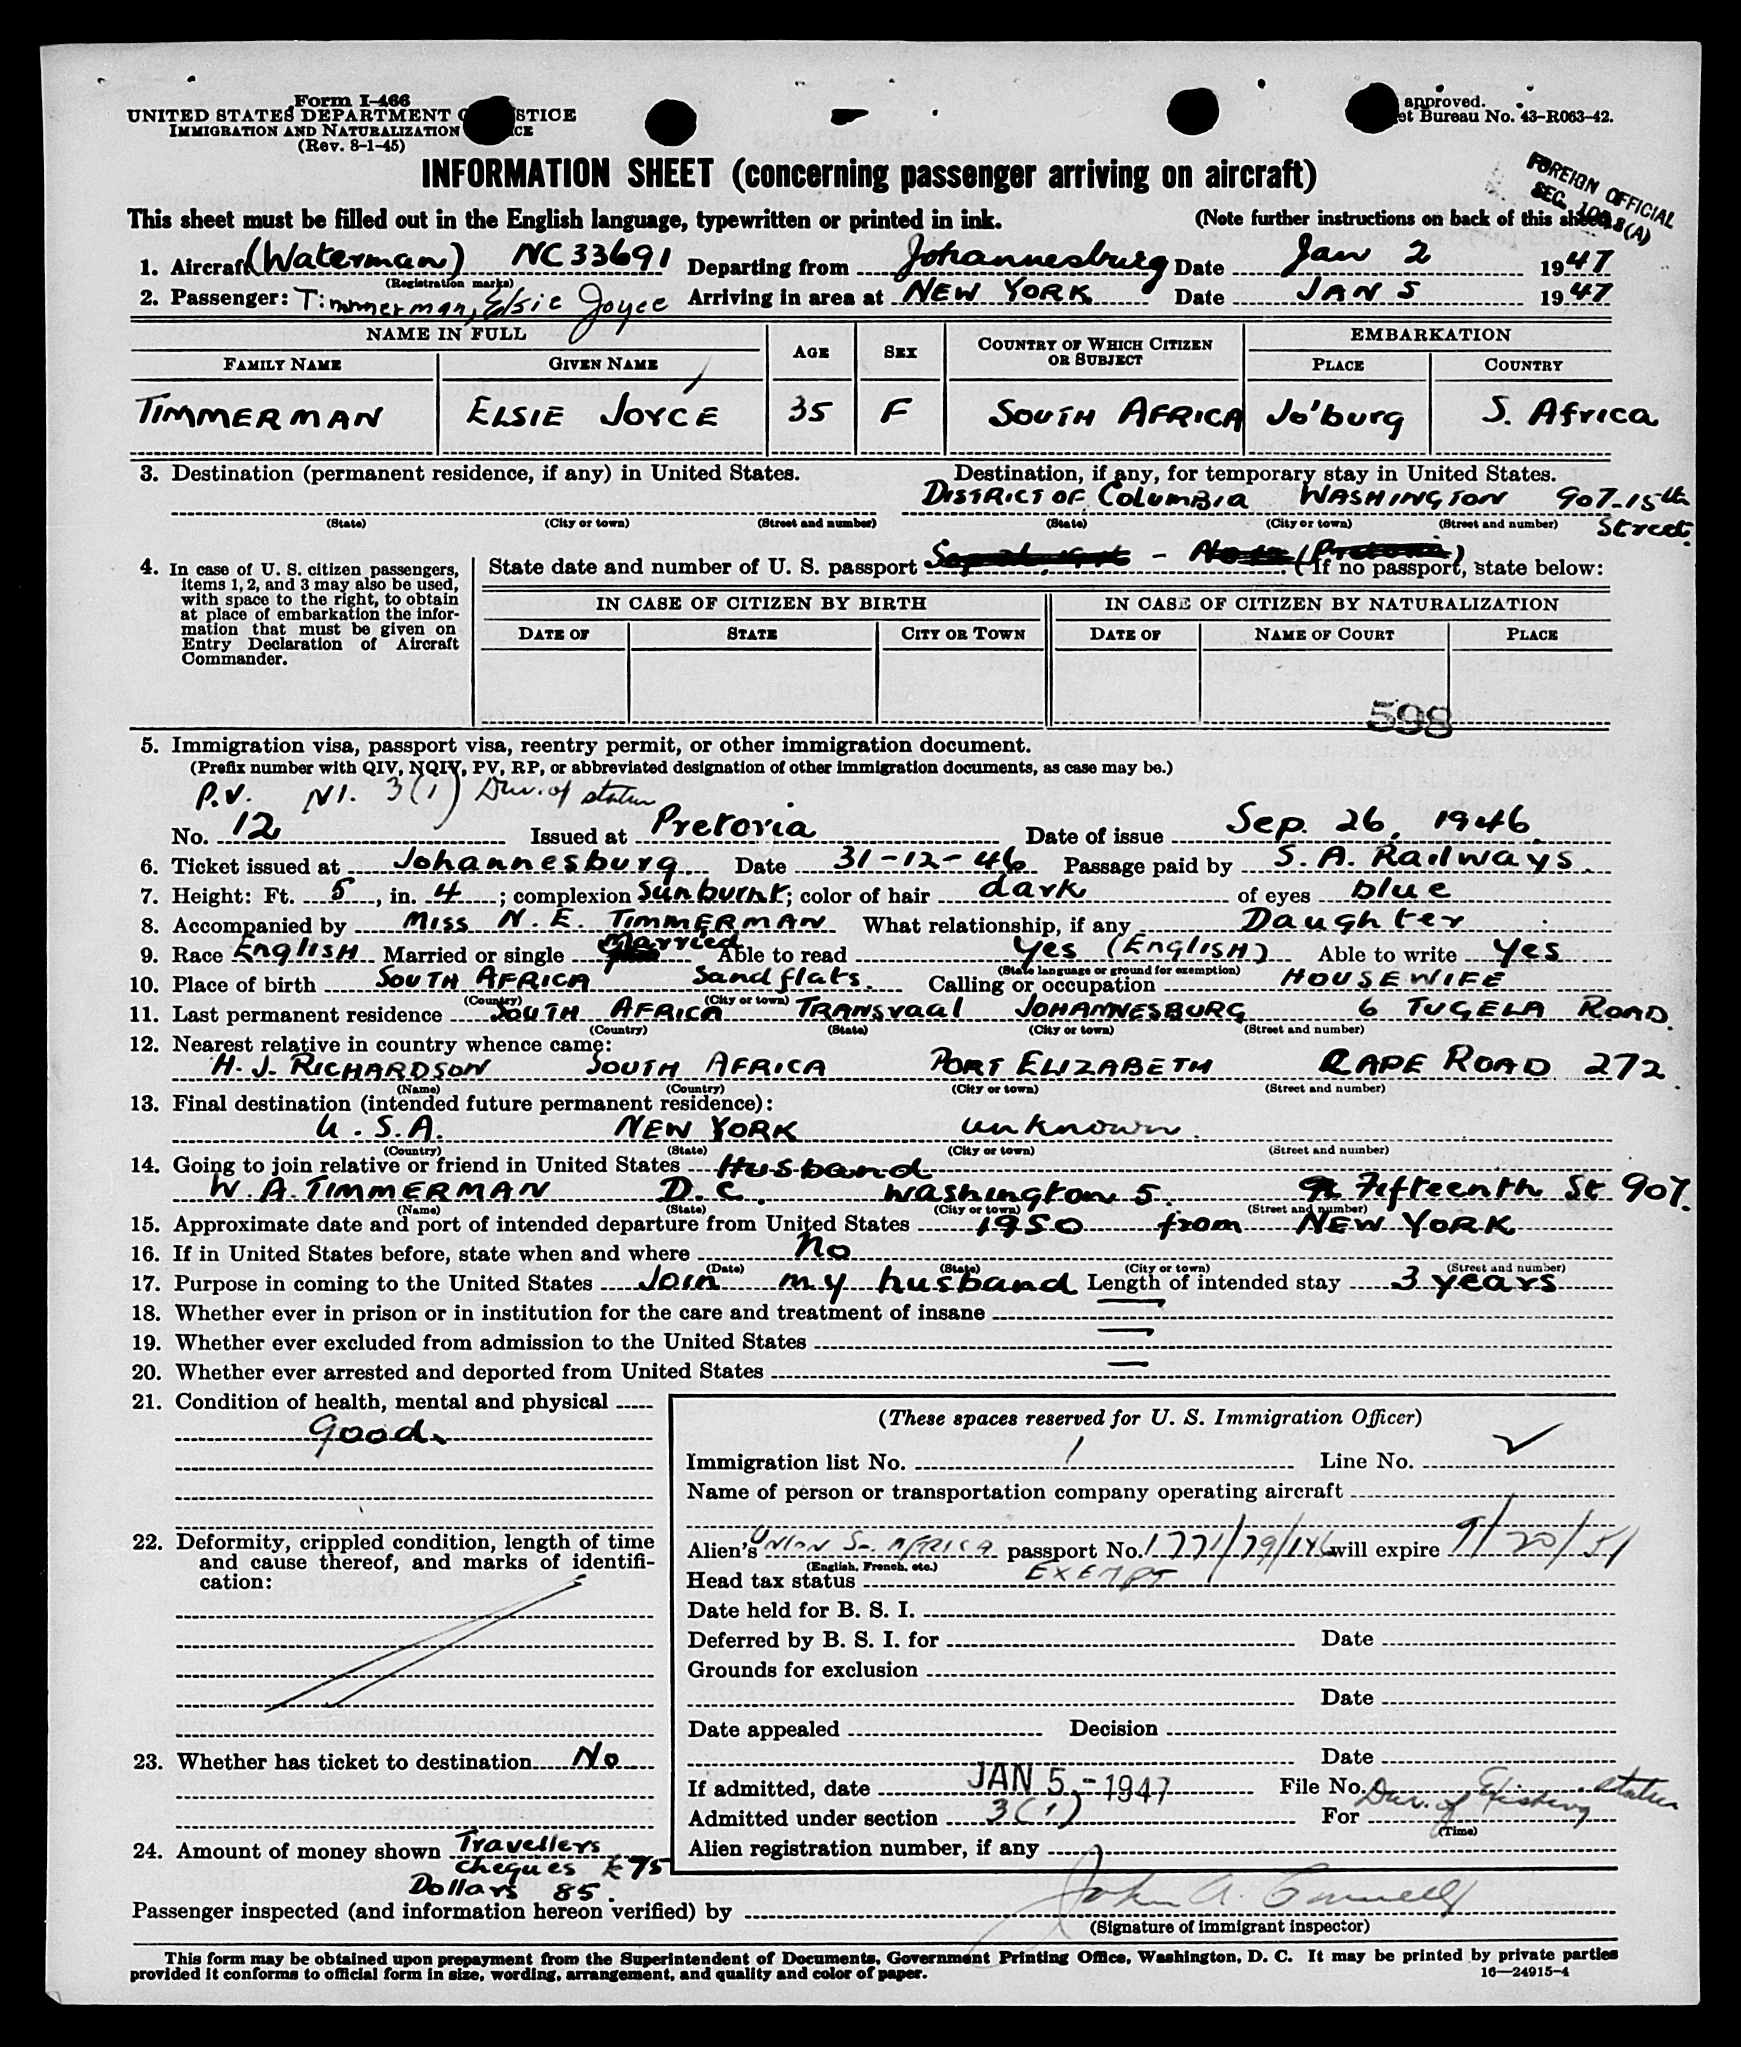 Form I-466
UNITED STATES DEPARTMENT STICE
IMMIGRATION AND NATURALIZATION CE
(Rev. 8-1-45)
approved.
et Bureau No. 43-R063-42.
INFORMATION SHEET (concerning passenger arriving on aircraft)
FOREIGN OFFICIAL
SEC.
This sheet must be filled out in the English language, typewritten or printed in ink. (Note further instructions on back of this sheet)
1. Aircraft (Waterman) NC33691 Departing from Johannesburg Date Jan 2 1947
(Registration marks)
2. Passenger: Timmerman, Elsie Joyce Arriving in area at NEW YORK Date JAN 5 1947
NAME IN FULL AGE SEX COUNTRY OF WHICH CITIZEN OR SUBJECT EMBARKATION
FAMILY NAME GIVEN NAME PLACE COUNTRY
TIMMERMAN ELSIE JOYCE 35 F SOUTH AFRICA Jo'burg S. Africa
3. Destination (permanent residence, if any) in United States. Destination, if any, for temporary stay in United States.
DISTRICT OF COLUMBIA WASHINGTON 907-15th Street.
(State) (City or town) (Street and number) (State) (City or town) (Street and number)
4. In case of U. S. citizen passengers, items 1, 2, and 3 may also be used, with space to the right, to obtain at place of embarkation the information that must be given on Entry Declaration of Aircraft Commander.
State date and number of U. S. passport - (Pretoria) (If no passport, state below:
IN CASE OF CITIZEN BY BIRTH IN CASE OF CITIZEN BY NATURALIZATION
DATE OF STATE CITY OR TOWN DATE OF NAME OF COURT PLACE
598
5. Immigration visa, passport visa, reentry permit, or other immigration document.
(Prefix number with QIV, NQIV, PV, RP, or abbreviated designation of other immigration documents, as case may be.)
P.V. NI. 3(1) Dur. of status
No. 12 Issued at Pretoria Date of issue Sep. 26, 1946.
6. Ticket issued at Johannesburg. Date 31-12-46 Passage paid by S. A. Railways.
7. Height: Ft. 5, in. 4; complexion Sunburnt; color of hair dark of eyes blue
8. Accompanied by MISS N. E. TIMMERMAN What relationship, if any Daughter
9. Race English Married or single Married Able to read Yes (ENGLISH) Able to write Yes
(State language or ground for exemption)
10. Place of birth SOUTH AFRICA Sandflats. Calling or occupation HOUSEWIFE
(Country) (City or town)
11. Last permanent residence SOUTH AFRICA TRANSVAAL JOHANNESBURG 6 TUGELA ROAD.
(Country) (State) (City or town) (Street and number)
12. Nearest relative in country whence came:
H. J. RICHARDSON SOUTH AFRICA PORT ELIZABETH CAPE ROAD 272.
(Name) (Country) (City or town) (Street and number)
13. Final destination (intended future permanent residence):
U.S.A. NEW YORK unknown.
(Country) (State) (City or town) (Street and number)
14. Going to join relative or friend in United States Husband
W. A. TIMMERMAN D.C. Washington 5. Fifteenth St 907.
(Name) (State) (City or town) (Street and number)
15. Approximate date and port of intended departure from United States 1950 from NEW YORK
16. If in United States before, state when and where No
(Date) (State) (City or town) (Street and number)
17. Purpose in coming to the United States Join my husband Length of intended stay 3 years
18. Whether ever in prison or in institution for the care and treatment of insane —
19. Whether ever excluded from admission to the United States —
20. Whether ever arrested and deported from United States —
21. Condition of health, mental and physical
good.
22. Deformity, crippled condition, length of time and cause thereof, and marks of identification:
23. Whether has ticket to destination No
24. Amount of money shown Travellers cheques £75
Dollars 85.
(These spaces reserved for U. S. Immigration Officer)
Immigration list No. 1 Line No.
Name of person or transportation company operating aircraft
Alien's UNION So. AFRICA passport No. will expire 9/20/51
(English, French, etc.)
Head tax status EXEMPT
Date held for B. S. I.
Deferred by B. S. I. for Date
Grounds for exclusion
Date
Date appealed Decision
Date
If admitted, date JAN 5 - 1947 File No.
Admitted under section 3(1) For Dur. of Existing status
(Time)
Alien registration number, if any
Passenger inspected (and information hereon verified) by John A.
(Signature of immigrant inspector)
This form may be obtained upon prepayment from the Superintendent of Documents, Government Printing Office, Washington, D. C. It may be printed by private parties
provided it conforms to official form in size, wording, arrangement, and quality and color of paper. 16—24915-4